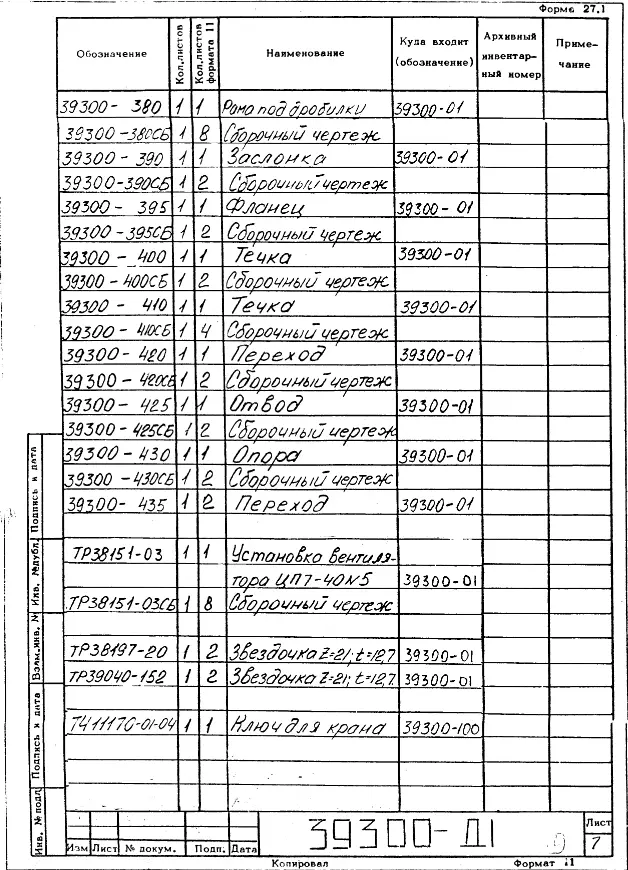 Форма 27.1
Обозначение Кол.листов Кол.листов формата 11 Наименование Куда входит (обозначение) Архивный инвентарный номер Примечание
39300- 380 1 1 Рама под дробилки 39300-01
39300-380СБ 1 8 Сборочный чертеж
39300- 390 1 1 Заслонка 39300-01
39300-390СБ 1 2 Сборочный чертеж
39300- 395 1 1 Фланец 39300-01
39300-395СБ 1 2 Сборочный чертеж
39300- 400 1 1 Течка 39300-01
39300-400СБ 1 2 Сборочный чертеж
39300- 410 1 1 Течка 39300-01
39300- 410СБ 1 4 Сборочный чертеж
39300- 420 1 1 Переход 39300-01
39300- 420СБ 1 2 Сборочный чертеж
39300- 425 1 1 Отвод 39300-01
39300- 425СБ 1 2 Сборочный чертеж
39300-430 1 1 Опора 39300-01
39300-430СБ 1 2 Сборочный чертеж
39300- 435 1 2 Переход 39300-01
ТР38151-03 1 1 Установка вентиля-
тора ЦП7-40№5 39300-01
ТР38151-03СБ 1 8 Сборочный чертеж
ТР38197-20 1 2 Звездочка Z=21; t=12,7 39300-01
ТР39040-152 1 2 Звездочка Z=21; t=12,7 39300-01
1 1 Ключ для крана 39300-100
Инв. № подл. Подпись и дата Взам.инв. № Инв. №дубл. Подпись и дата
39300-Д1
Лист
7
Изм Лист № докум. Подп. Дата
Копировал Формат 11